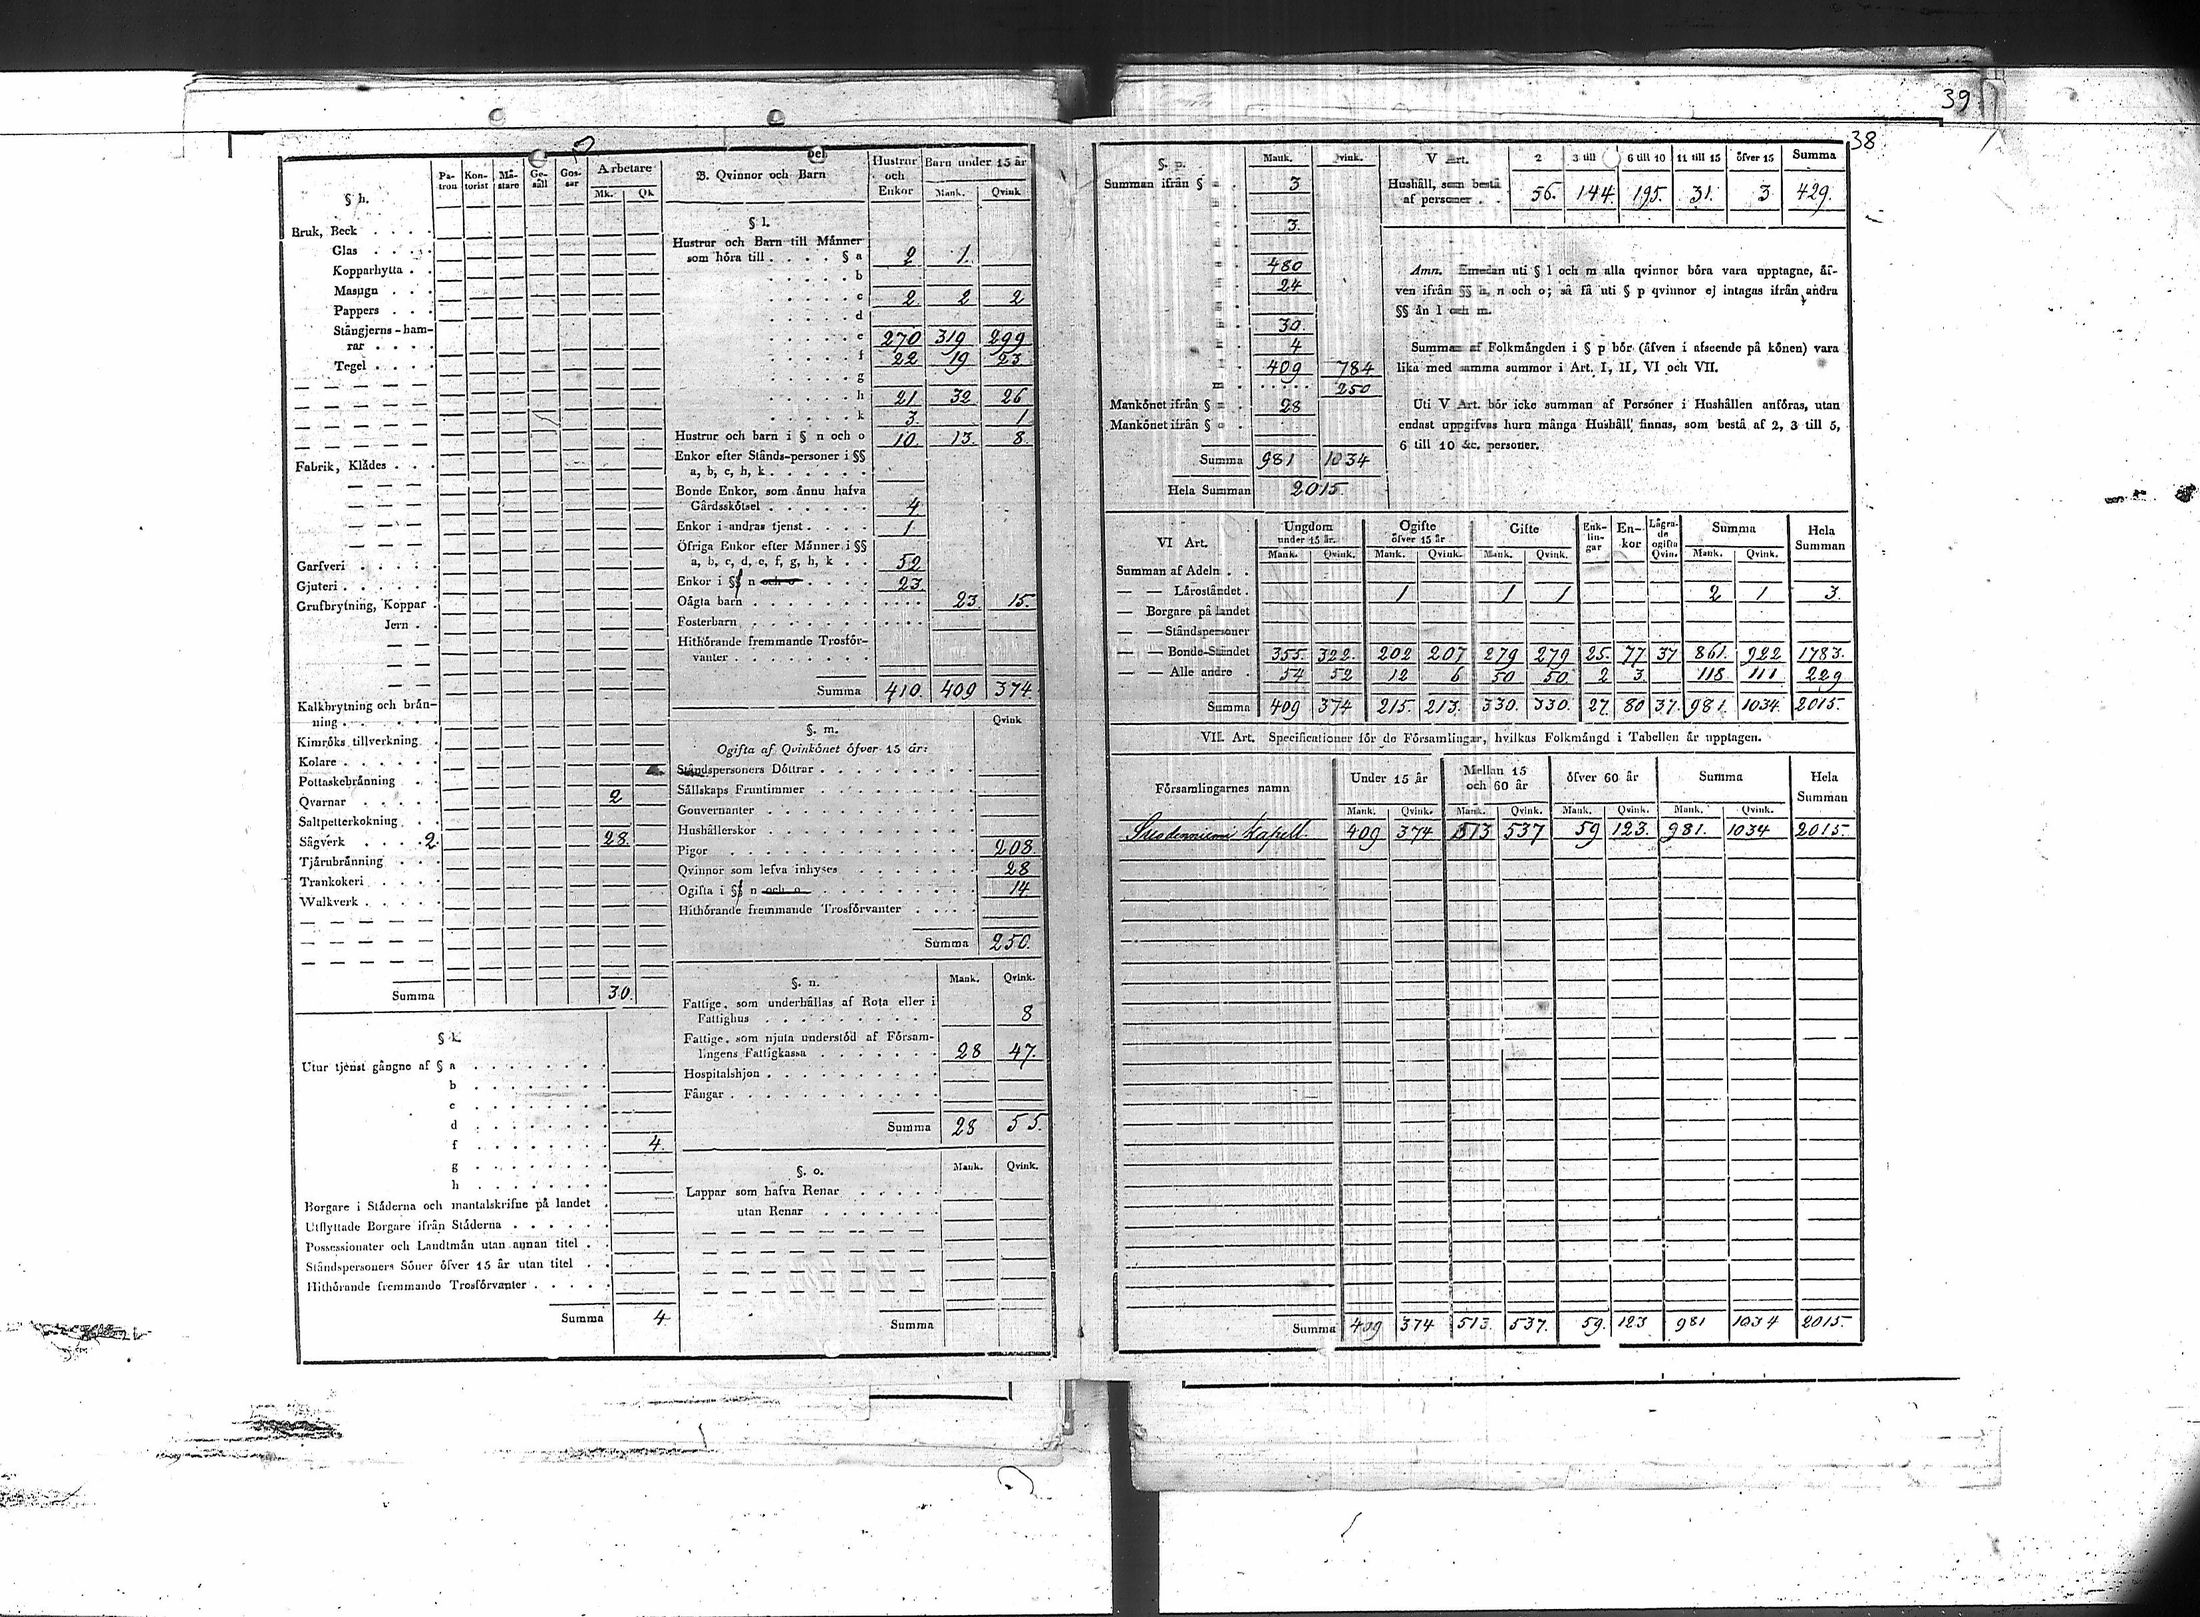 39
38
§ h.
Patron Kontorist Mästare Gesäll Gossar Arbetare
Mk. Qk
Bruk, Beck . . . .
Glas . . . .
Kopparhytta . .
Masugn . . .
Pappers . . .
Stångjerns-hamrar . . . .
Tegel . . . .
Fabrik, Klådes . . .
Garfveri . . . . .
Gjuteri . . . . .
Grufbrytning, Koppar .
Jern . .
Kalkbrytning och bränning . . . . .
Kimröks tillverkning .
Kolare . . . . .
Pottaskebränning . .
Qvarnar . . . . . 2
Saltpetterkokning . .
Sågverk . . . . 2. 28.
Tjärubränning . . .
Trankokeri . . . .
Walkverk . . . . .
Summa 30.
§ k.
Utur tjenst gångne af § a . . . . . . . .
b . . . . . . . .
c . . . . . . . .
d . . . . . . . .
f . . . . . . . . 4.
g . . . . . . . .
h . . . . . . . .
Borgare i Städerna och mantalskrifne på landet .
Utflyttade Borgare ifrån Städerna . . . . . .
Possessionater och Landtmän utan annan titel . .
Ståndspersoners Söner öfver 15 år utan titel . .
Hithörande fremmande Trosförvanter . . . . .
Summa 4.
B. Qvinnor och Barn
Hustrur och Enkor Barn under 15 år
Mank. Qvink
§ l.
Hustrur och Barn till Männer
som höra till . . . . § a 2 1.
. . . . . b
. . . . . c 2 2 2
. . . . . d
. . . . . e 270 319 299
. . . . . f 22 19 23
. . . . . g
. . . . . h 21 32 26
. . . . . k 3. 1
Hustrur och barn i § n och o 10. 13. 8.
Enkor efter Stånds-personer i §§
a, b, c, h, k . . . . . .
Bonde Enkor, som ännu hafva
Gårdsskötsel . . . . . . 4
Enkor i andras tjenst . . . . 1.
Öfriga Enkor efter Männer i §§
a, b, c, d, e, f, g, h, k . . 52
Enkor i § n och o . . . . . 23.
Oägta barn . . . . . . . . 23. 15.
Fosterbarn . . . . . . . .
Hithörande fremmande Trosförvanter . . . . . . . .
Summa 410. 409 374.
§. m.
Qvink
Ogifta af Qvinkönet öfver 15 år:
Ståndspersoners Döttrar . . . . . . . . .
Sällskaps Fruntimmer . . . . . . . . .
Gouvernanter . . . . . . . . . . . .
Hushållerskor . . . . . . . . . . . .
Pigor . . . . . . . . . . . . . 208.
Qvinnor som lefva inhyses . . . . . . . 28
Ogifta i § n och o . . . . . . . . . . 14
Hithörande fremmande Trosförvanter . . . .
Summa 250.
§. n.
Mank. Qvink.
Fattige, som underhållas af Rota eller i
Fattighus . . . . . . . . . . 8
Fattige, som njuta understöd af Församlingens Fattigkassa . . . . . . . 28 47.
Hospitalshjon . . . . . . . . . .
Fångar . . . . . . . . . . . .
Summa 28 55.
§. o.
Mank. Qvink.
Lappar som hafva Renar . . . . .
utan Renar . . . . . . .
Summa
§. p.
Mank. Qvink.
Summan ifrån § . 3
3.
480
24
30.
4
409 784
m . . . . . . 250
Mankönet ifrån § . 28
Mankönet ifrån § o .
Summa 981 1034
Hela Summan 2015.
V Art. 2 3 till 6 till 10 11 till 15 öfver 15 Summa
Hushåll, som bestå
af personer . . 56. 144. 195. 31. 3. 429.
Anm. Emedan uti § l och m alla qvinnor böra vara upptagne, äfven ifrån §§ h, n och o; så få uti § p qvinnor ej intagas ifrån andra
§§ än l och m.
Summan af Folkmängden i § p bör (äfven i afseende på könen) vara
lika med samma summor i Art. I, II, VI och VII.
Uti V Art. bör icke summan af Personer i Hushållen anföras, utan
endast uppgifvas huru många Hushåll finnas, som bestå af 2, 3 till 5,
6 till 10 &c. personer.
VI Art.
Ungdom under 15 år. Ogifte öfver 15 år Gifte Enklingar Enkor Lägrade ogifta Qvin. Summa Hela Summan
Mank. Qvink. Mank. Qvink. Mank. Qvink. Mank. Qvink.
Summan af Adeln . .
— — Läroståndet . 1 1 1 2 1 3.
— Borgare på landet
— — Ståndspersoner
— — Bonde-Ståndet 355. 322. 202 207 279 279 25. 77 37 861. 922 1783.
— — Alle andre . 54 52 12 6 50 50 2 3 118. 111 229
Summa 409 374 215. 213. 330. 330. 27. 80 37. 981. 1034. 2015.
VII. Art. Specificationer för de Församlingar, hvilkas Folkmängd i Tabellen är upptagen.
Församlingarnes namn Under 15 år Mellan 15 och 60 år öfver 60 år Summa Hela Summan
Mank. Qvink. Mank. Qvink. Mank. Qvink. Mank. Qvink.
Suodenniemi Kapell. 409 374 513 537 59 123. 981. 1034 2015.
Summa 409 374 513. 537. 59. 123 981 1034 2015.